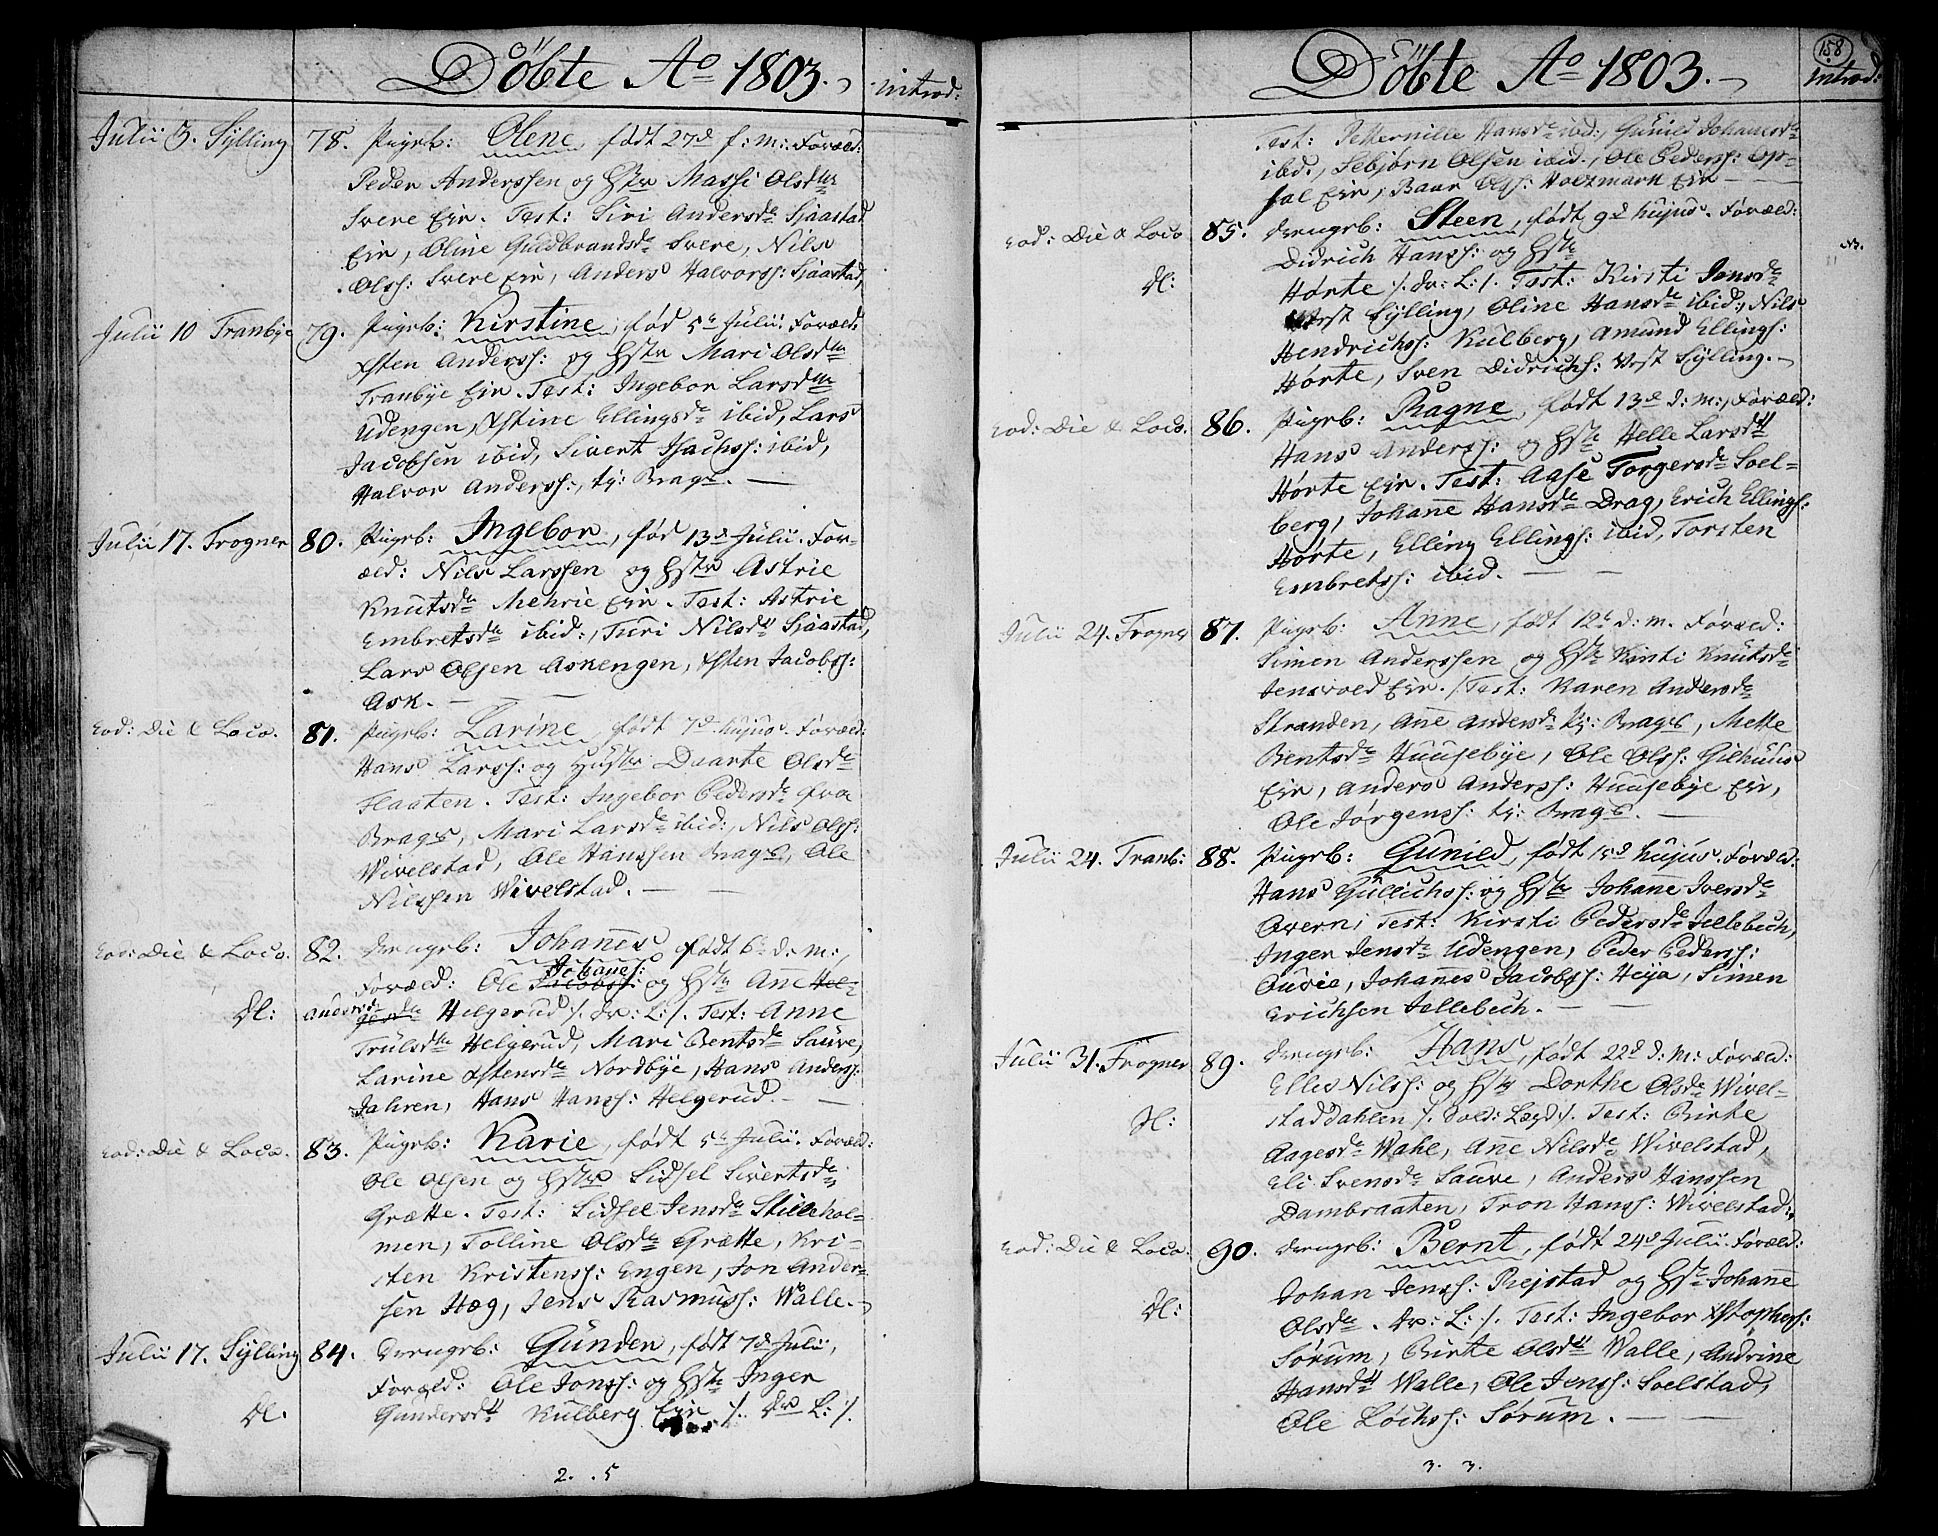 Döbte Ao 1803.
introd:
Julii 3. Sylling 78. Pigeb: Olene, født 27d f: m: Foræld:
Peder Anderssen og Hstr Massi Olsdtr
Svere Eir. Test: Siri Andersdr Sjaastad
Eir, Oline Guldbrandsdr Svere, Nils
Olss: Svere Eir, Anders Halvorss: Sjaastad,
Julii 10 Tranbye 79. Pigeb: Kirstine, fød 5te Julii. Foræld:
Xsten Anderss: og Hstr Mari Olsdtr
Tranbye Eir. Test: Ingebor Larsdtr
Udengen, Xstine Ellingsdr ibid, Lars
Jacobsen ibid, Sivert Isachss: ibid,
Halvor Anderss:, tj: Brags.
Julii 17. Frogner 80. Pigeb: Ingebor, fød 13d Julii. For-
æld: Nils Larssen og Hstr Astrie
Knutsdr Mehrie Eir. Test: Astrie
Embretsdr ibid:, Turi Nilsdtr Sjaastad,
Lars Olsen Askengen, Xsten Jacobss:
Ask.
Eod: Die & Loco. 81. Pigeb: Larine, født 7d hujus. Foræld:
Hans Larss: og Hustr Daarte Olsdr
Flaaten. Test: Ingebor Pedersdr fra
Brags, Mari Larsdr ibid:, Nils Olss:
Wivelstad, Ole Hanssen Brags, Ole
Nilssen Wivelstad.
Eod: Die & Loco. 82. Drengeb: Johannes født 6te d: m:,
Foræld: Ole Jacobss: Johanes: og Hstr Anne Hel-
Dl: Andersdr gesdr Helgerud /. Dr: L: /. Test: Anne
Trulsdtr Helgerud, Mari Bentsdr Sauve,
Larine Xstensdr Nordbye, Hans Anderss:
Jahren, Hans Hanss: Helgerud.
Eod: Die & Loco. 83. Pigeb: Karie, født 5te Julii. Foræld:
Ole Olsen og Hstr Sidsel Sivertsdr
Grætte. Test: Sidsel Jensdr Stillehol-
men, Tolline Olsdr Grætte, Kri-
sten Kristenss: Engen, Jon Ander-
sen Hæg, Jens Rasmuss: Walle.
Julii 17. Sylling 84. Drengeb: Gunden, født 7d Julii,
Foræld: Ole Jonss: og Hstr Inger
Dl. Gundersdtr Kulberg Eir /. Dr L: /.
2. 5
158
Döbte Ao 1803.
Introd:
Test: Petternille Hansdr ibid:, Gunild Johanesdr
ibid., Sebjørn Olsen ibid., Ole Pederss: Op-
sal Eir, Baar Olss: Holtzmark Eir
Eod: Die & Loco 85. Drengeb: Steen, født 9d hujus. Foræld:
Didrich Hanss: og Hstr
Dl: Hørte /. dr: L: /. Test: Kirsti Jensdr
West Sylling, Oline Hansdr ibid:, Nils
Hendrichss: Kulberg, Amund Ellingss:
Hørte, Sven Didrichs: West Sylling.
Eod: Die & Loco. 86. Pigeb: Ragne, født 13d d: m:, Foræld:
Hans Anderss: og Hstr Helle Larsdtr
Hørte Eir. Test: Aase Torgersdr Soel-
berg, Johanne Hansdr Drag, Erich Ellings:
Hørte, Elling Ellings: ibid, Torsten
Embretss: ibid.
Julii 24. Frogner 87. Pigeb: Anne, født 12te d: m. Foræld:
Simen Anderssen og Hstr Kirsti Knutsdr
Jensvold Eir. /. Test: Karen Andersdr
Stranden, Anne Andersdr tj: Brags, Mette
Bentsdr Huusebye, Ole Olss: Gilhuus
Eir, Anders Anderss: Huusebye Eir,
Ole Jørgenss: tj: Brags.
Julii 24. Tranb: 88. Pigeb: Gunild, født 15d hujus. Foræld:
Hans Gullichss: og Hstr Johanne Iversdr
Overn, Test: Kirsti Pedersdr Jellebech,
Inger Jensdr Udengen, Peder Pederss:
Ouvie, Johannes Jacobss: Heja, Simen
Erichsen Jellebech.
Julii 31. Frogner 89. Drengeb: Hans, født 22d d: m: Foræld:
Elles Nilss: og Hstr Dorthe Olsdr Wivel-
Dl: staddahlen /. Sold: Lægd /. Test: Birte
Aagesdr Wahl, Anne Nilsdr Wivelstad,
Eli Svensdr Sauve, Anders Hanssen
Dambraaten, Tron Hanss: Wivelstad:,
Eod: Die & Loco. 90. Drengeb: Bernt, født 24d Julii. Foræld:
Johan Jenss: Rejstad og Hstr Johanne
Dl: Olsdr. Dr: L: /. Test: Ingebor Xstophers:
Sørum, Birte Olsdtr Walle, Andrine
Hansdtr Walle, Ole Jenss: Soelstad,
Ole Lochss: Sørum.
3. 3.